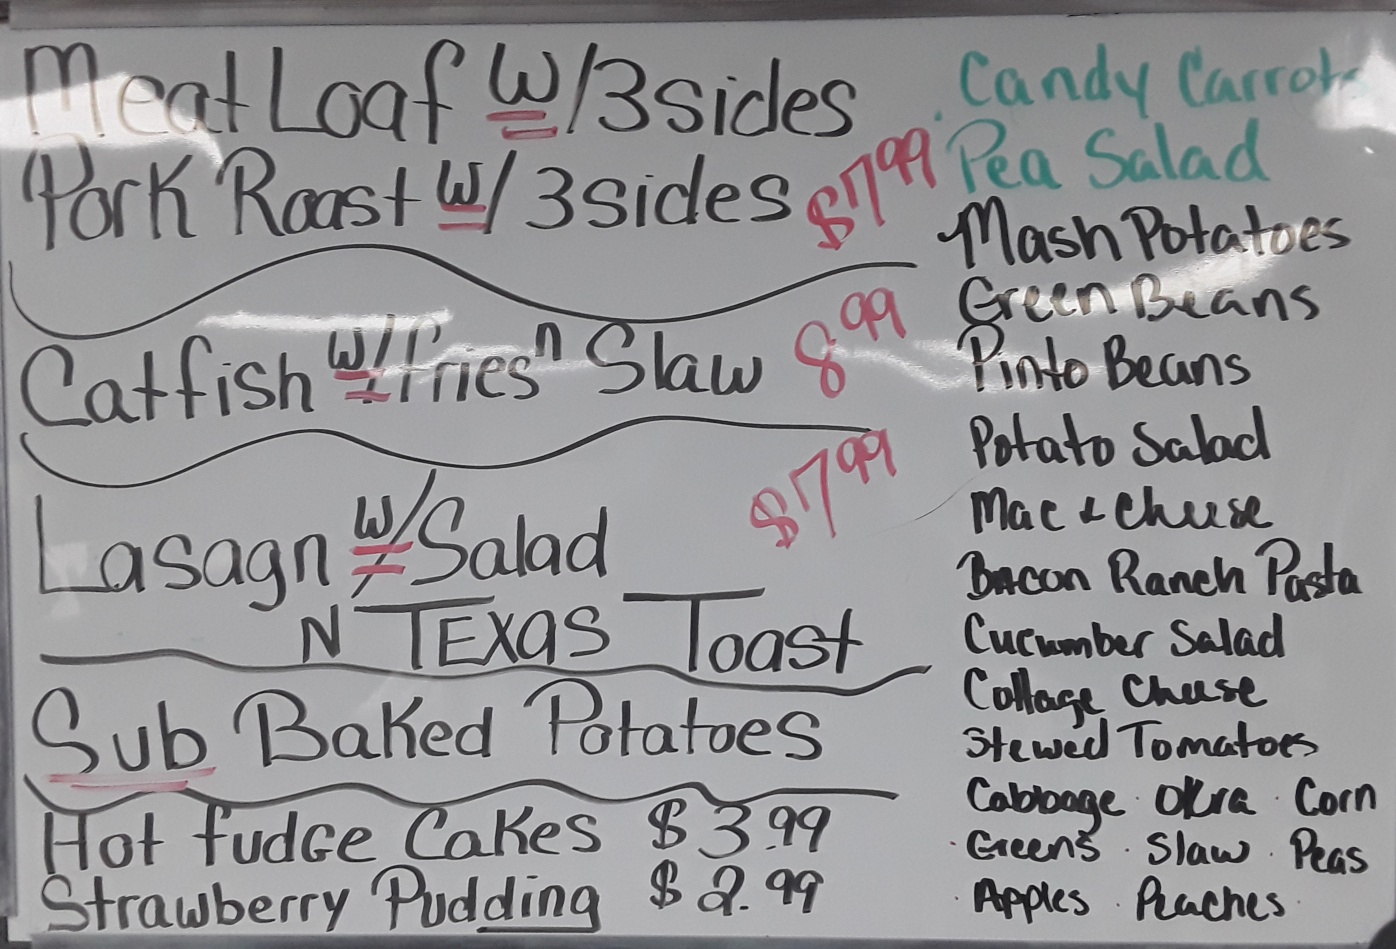 Meat Loaf w/3 sides
Pork Roast w/ 3 sides $7.99
Catfish w/fries n Slaw 8.99
Lasagn w/Salad $7.99
N TEXAS Toast
Sub Baked Potatoes
Hot fudGe Cakes $3.99
Strawberry Pudding $2.99
Candy Carrots
Pea Salad
Mash Potatoes
Green Beans
Pinto Beans
Potato Salad
Mac & Cheese
Bacon Ranch Pasta
Cucumber Salad
Cottage Cheese
Stewed Tomatoes
Cabbage · Okra · Corn
· Greens · Slaw · Peas
· Apples · Peaches ·